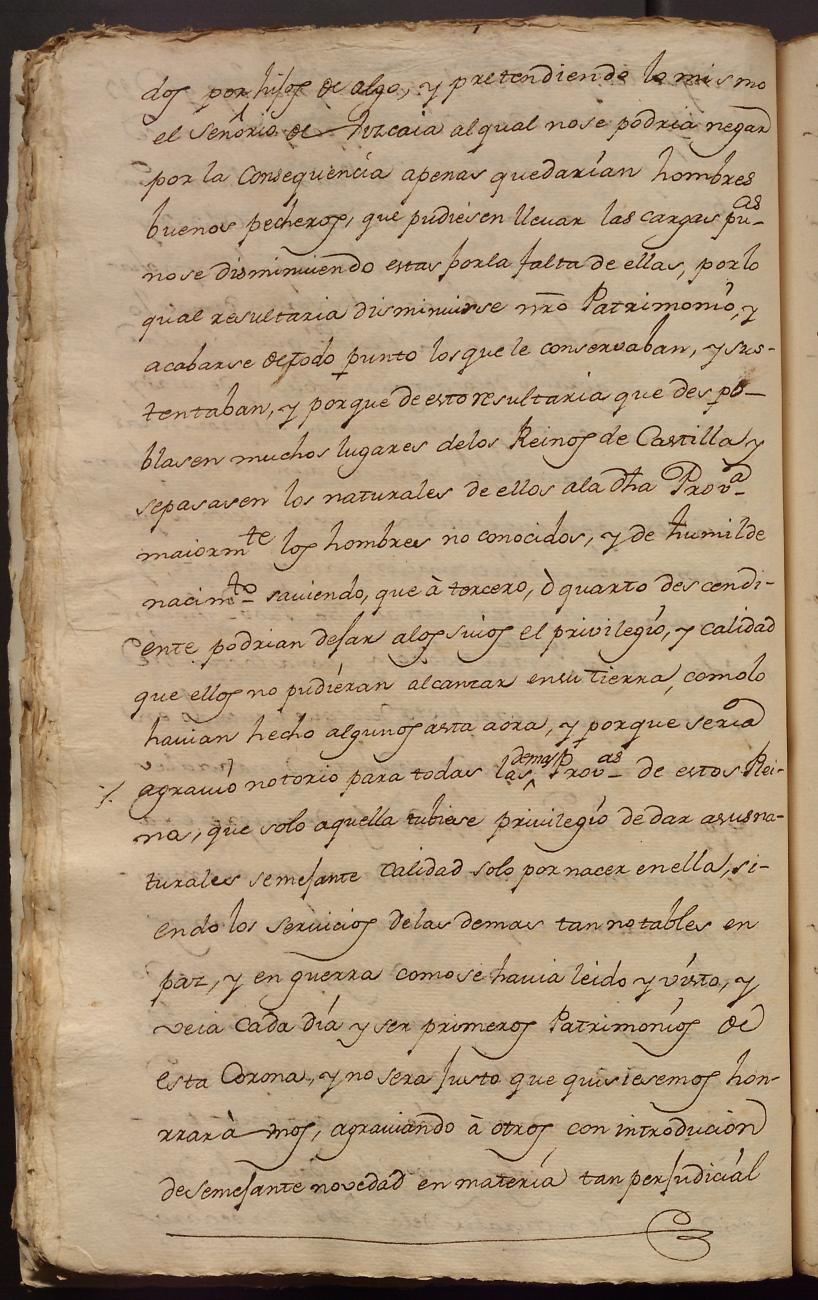 dos por hijos de algo, y pretendiendo lo mismo
el señorio de Vizcaia al qual nose podria negar
por la Consequencia apenas quedarian hombres
buenos pecheros, que pudiesen lleuar las cargas pu^as_
nose disminuiendo estas porla falta de ellas, porlo
qual resultaria disminuirse nro Patrimonio, y
acabarse detodo punto losque le conservaban, y sus-
tentaban, y porque de esto resultaria que despo-
blasen muchos lugares delos Reinos de Castilla, y
sepasasen los naturales de ellos ala dha Prov^a
maiorm^te los hombres no conocidos, y de humilde
nacim^to sauiendo, que à tercero, ò quarto descendi-
ente podrian dejar alos suios el privilegio, y calidad
que ellos no pudieran alcanzar ensu tierra, comolo
hauian hecho algunos asta aora, y porque seria
/. agrauio notorio para todas las demas Prov^as de estos Rei-
no, que solo aquella tubiese privilegio de dar asus na-
turales semejante Calidad solo por nacer en ella, si-
endo los seruicios delas demas tan notables en
paz, y en guerra como se hauia leido y visto, y
veia Cada dia y ser primeros Patrimonios de
esta Corona, y no sera Justo que quisiesemos hon-
rrar à unos, agrauiando à otros con introducion
de semejante novedad en materia tan perjudicial